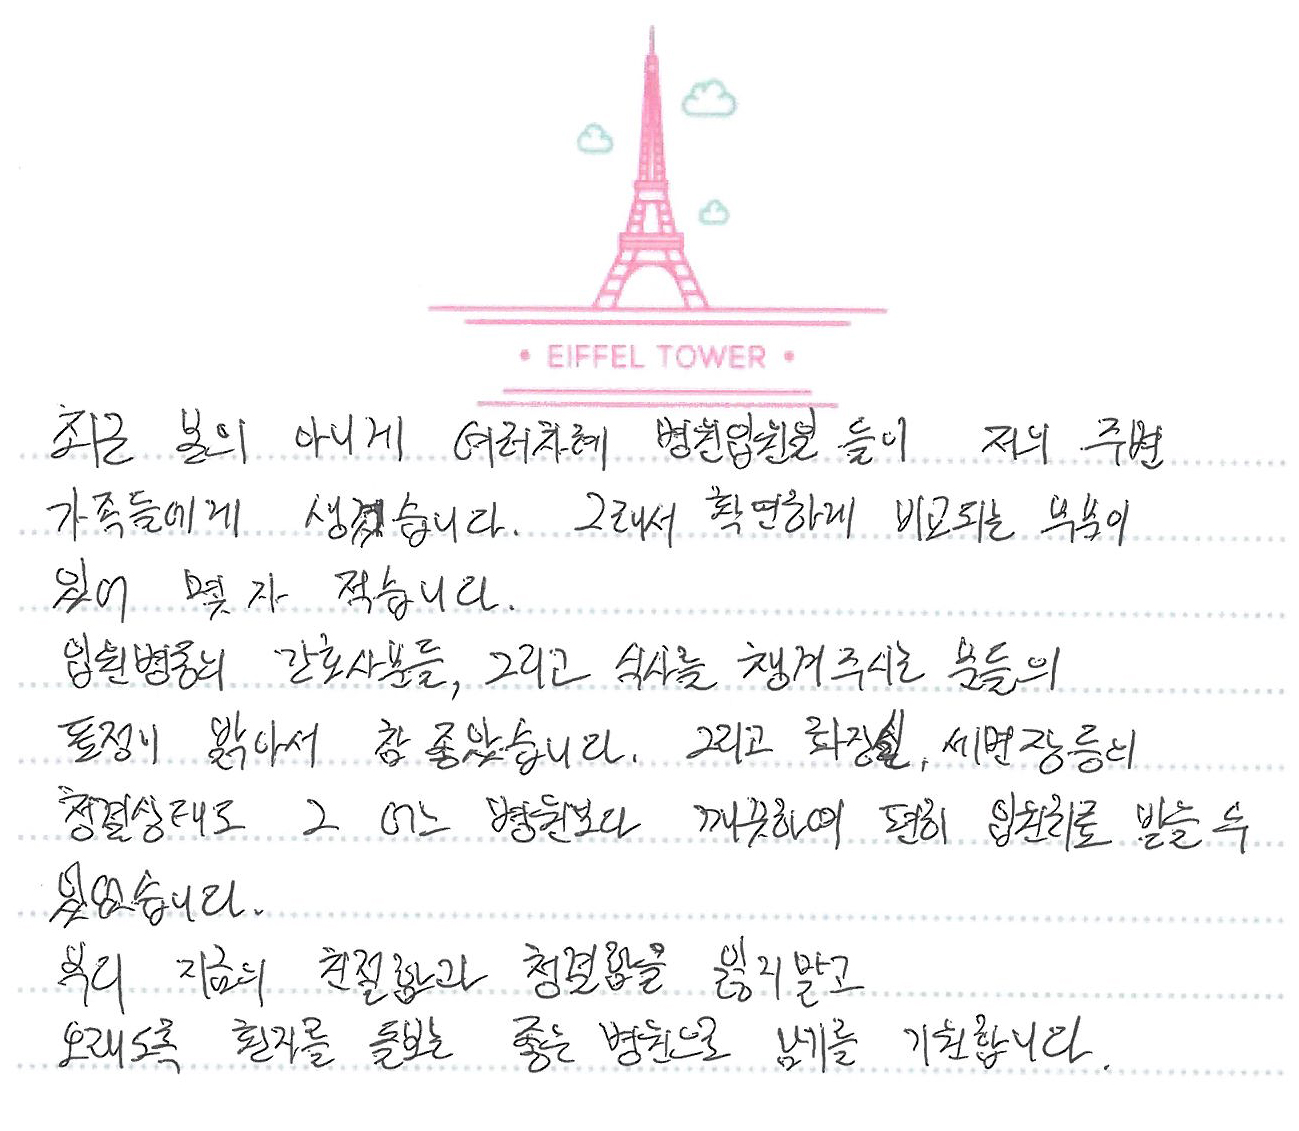 • EIFFEL TOWER •
최근 본의 아니게 여러차례 병원입원할 들이 저의 주변
가족들에게 생겼습니다. 그래서 확연하게 비교되는 부분이
있어 몇 자 적습니다.
입원병동의 간호사분들, 그리고 식사를 챙겨주시는 분들의
표정이 밝아서 참 좋았습니다. 그리고 화장실, 세면장등의
청결상태도 그 어느 병원보다 깨끗하여 편히 입원치료 받을 수
있었습니다.
부디 지금의 친절함과 청결함을 잃지말고
오래도록 환자를 돌보는 좋은 병원으로 남기를 기원합니다.